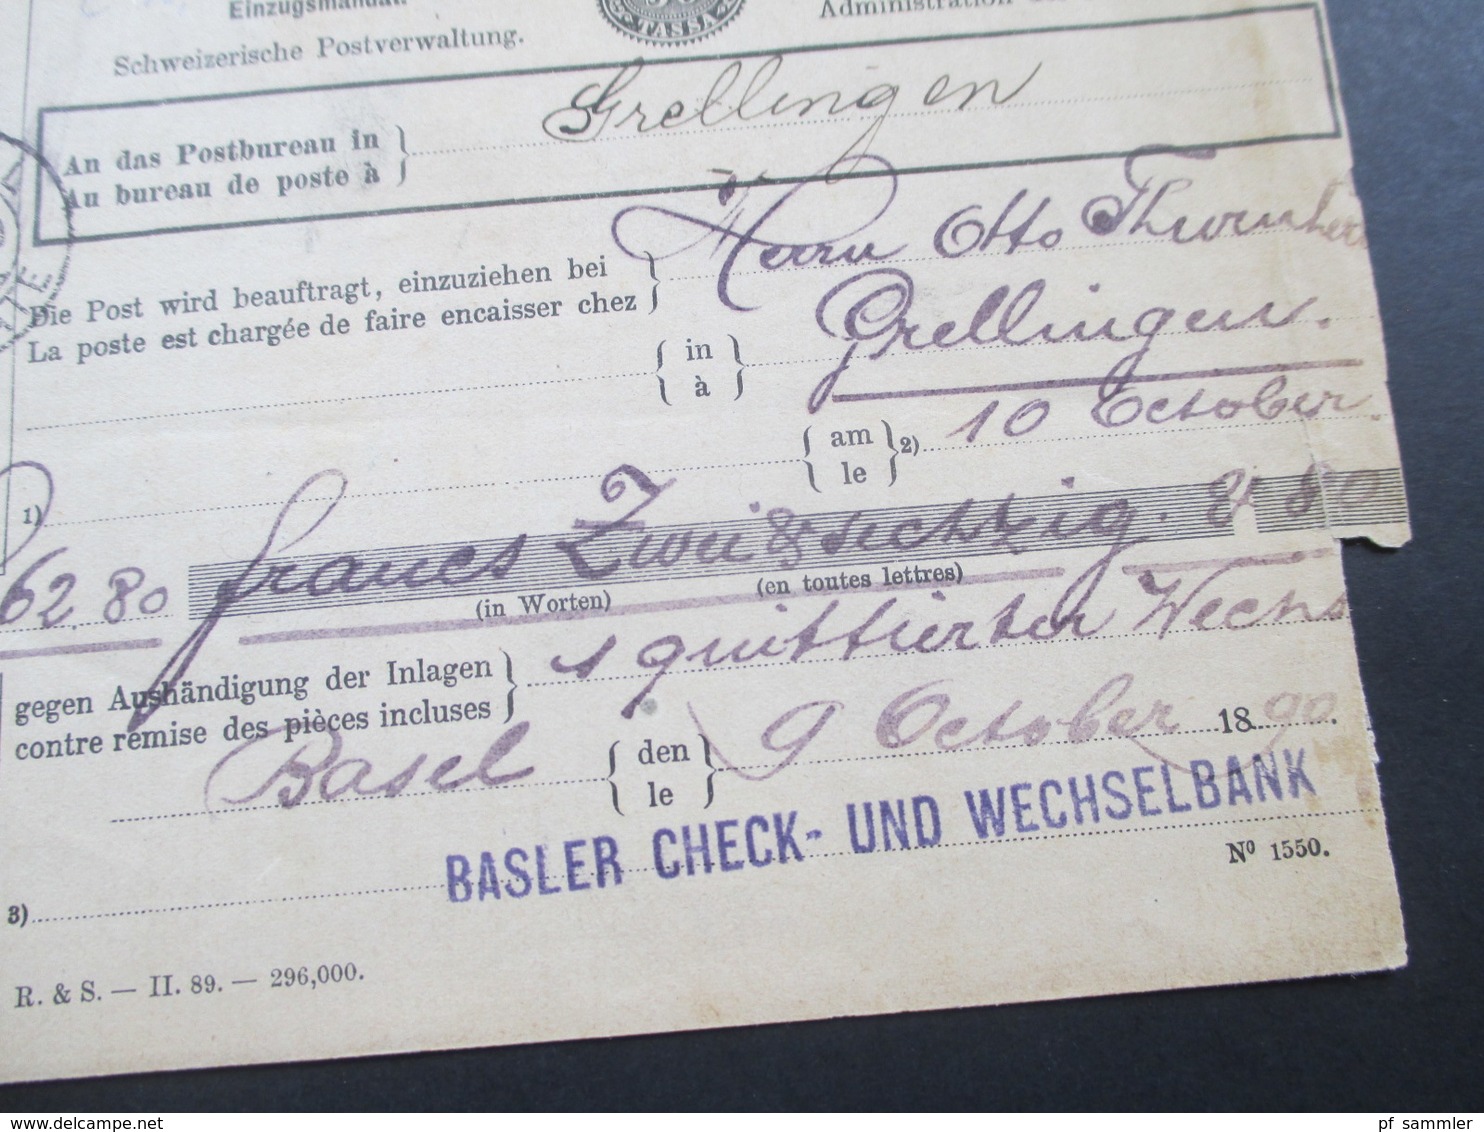 Einzugsmandat.
TASSA
Administration
Schweizerische Postverwaltung.
An das Postbureau in
Au bureau de poste à
Grellingen
Die Post wird beauftragt, einzuziehen bei
La poste est chargée de faire encaisser chez
Herrn Otto
in
à
Grellingen.
am
le
2) 10 October.
1)
62.80 francs Zwei & sechzig. & 80
(in Worten)
(en toutes lettres)
gegen Aushändigung der Inlagen
contre remise des pièces incluses
1 quittierter Wechs
Basel
den
le
9 October 1890.
BASLER CHECK- UND WECHSELBANK
3)
Nº 1550.
R. & S. — II. 89. — 296,000.
pf_sammler